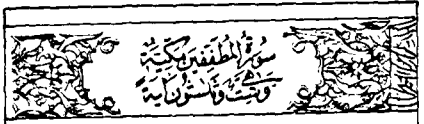 سورة المطففين مكية
وهي ست وثلثون اية